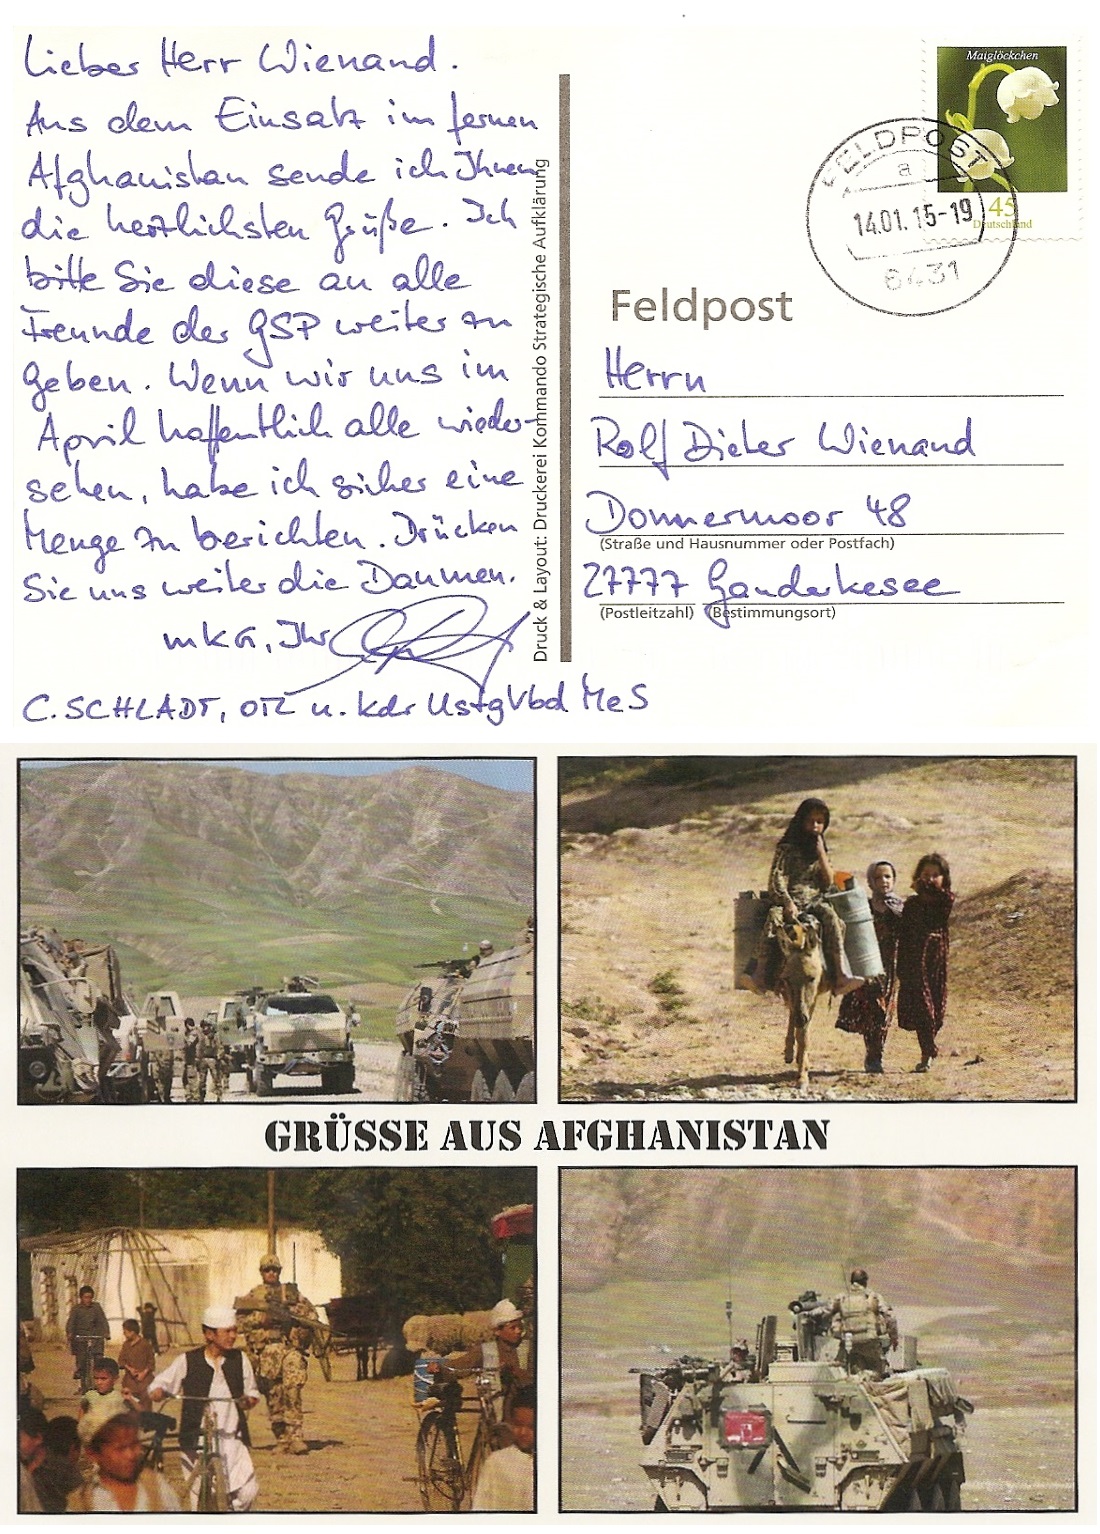 Lieber Herr Wienand.
Aus dem Einsatz im fernen
Afghanistan sende ich Ihnen
die herzlichsten Grüße. Ich
bitte Sie diese an alle
Freunde der GSP weiter zu
geben. Wenn wir uns im
April hoffentlich alle wieder-
sehen, habe ich sicher eine
Menge zu berichten. Drücken
Sie uns weiter die Daumen.
mkG, Ihr
C. SCHLADT, OTL u. Kdr UstgVbd MeS
Druck & Layout: Druckerei Kommando Strategische Aufklärung
Maiglöckchen
45
Deutschland
FELDPOST
a
14.01.15-19
6431
Feldpost
Herrn
Rolf Dieter Wienand
Donnermoor 48
(Straße und Hausnummer oder Postfach)
27777 Ganderkesee
(Postleitzahl) (Bestimmungsort)
GRÜSSE AUS AFGHANISTAN